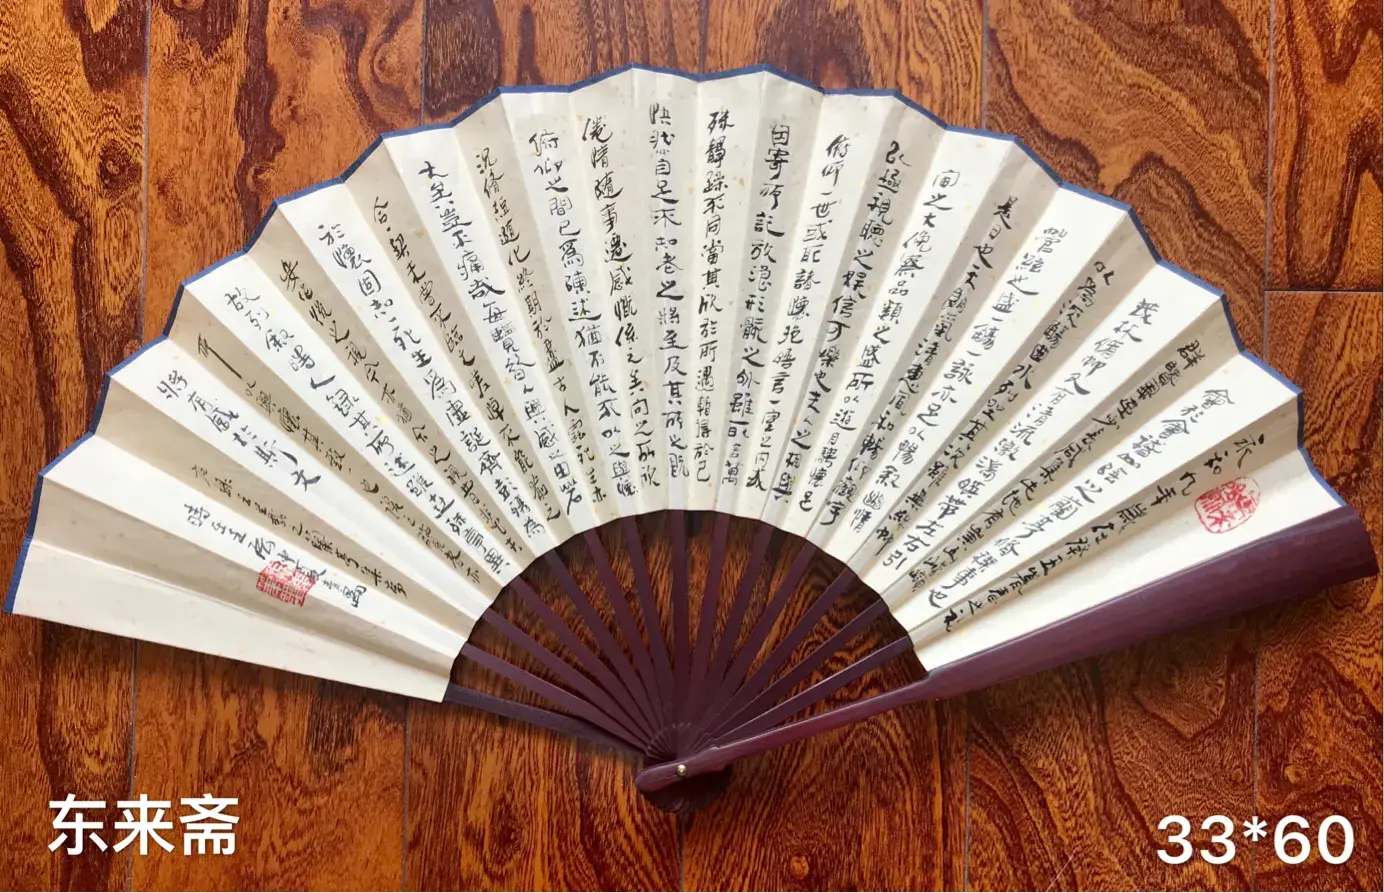 永和九年歲在癸丑暮春之初
會於會稽山陰之蘭亭脩稧事也
群賢畢至少長咸集此地有崇山峻領
茂林脩竹又有清流激湍暎帶左右引
以為流觴曲水列坐其次雖無絲竹
管弦之盛一觴一詠亦足以暢敘幽情
是日也天朗氣清惠風和暢仰觀宇
宙之大俯察品類之盛所以遊目騁懷足
以極視聽之娛信可樂也夫人之相與
俯仰一世或取諸懷抱悟言一室之內或
因寄所託放浪形骸之外雖萬
殊靜躁不同當其欣於所遇暫得於己
快然自足不知老之將至及其所之既
倦情隨事遷感慨係之矣向之所欣
俯仰之間已為陳迹猶不能不以之興懷
況脩短隨化終期於盡古人云死生亦
大矣豈不痛哉每覽昔人興感之由若
合一契未嘗不臨文嗟悼不能喻之
於懷固知一死生為虛誕齊彭殤為
妄作後之視今亦由今之視昔悲夫
故列敘時人錄其所述雖世殊事異
所以興懷其致一也後之覽者亦
將有感於斯文
東来斋
33*60